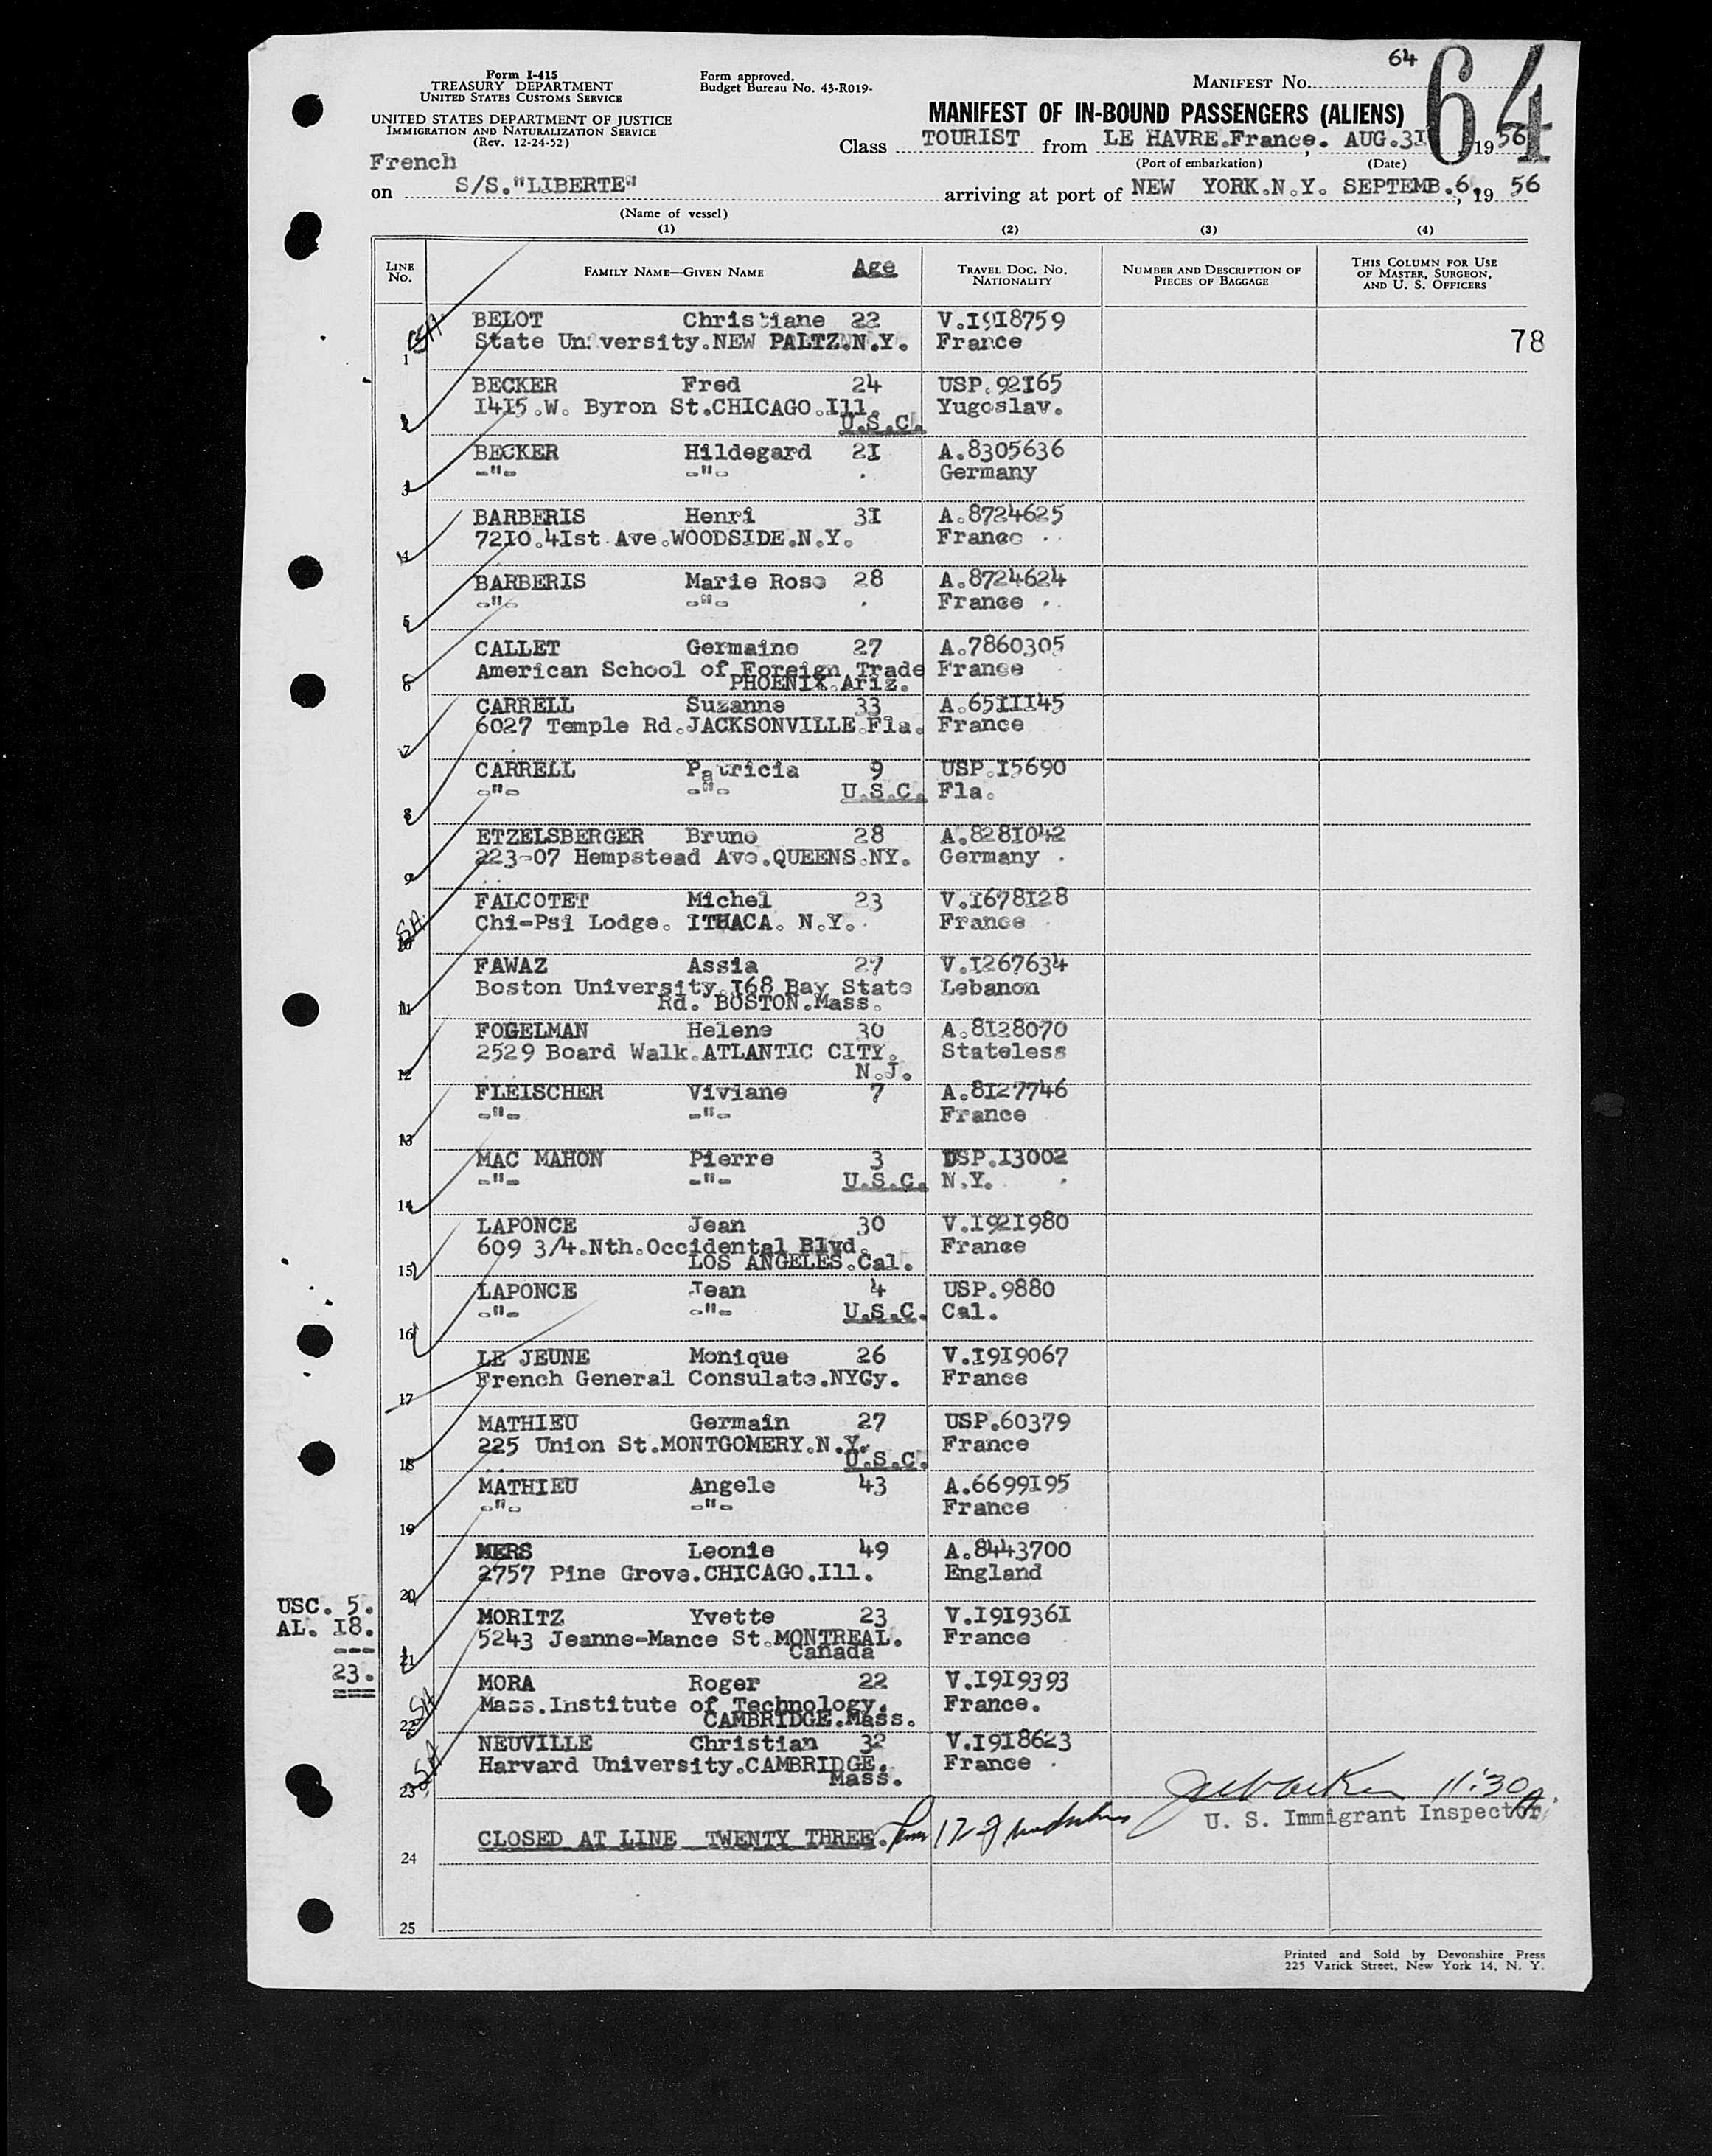 64
64
Form I-415
TREASURY DEPARTMENT
UNITED STATES CUSTOMS SERVICE
Form approved.
Budget Bureau No. 43-R019-
MANIFEST No.
UNITED STATES DEPARTMENT OF JUSTICE
IMMIGRATION AND NATURALIZATION SERVICE
(Rev. 12-24-52)
MANIFEST OF IN-BOUND PASSENGERS (ALIENS)
Class TOURIST from LE HAVRE.France. AUG.3I , 19 56
(Port of embarkation) (Date)
French
on S/S."LIBERTE" arriving at port of NEW YORK.N.Y. SEPTEMB.6, 19 56
(Name of vessel)
(1) (2) (3) (4)
LINE No. FAMILY NAME—GIVEN NAME Age TRAVEL DOC. NO. NATIONALITY NUMBER AND DESCRIPTION OF PIECES OF BAGGAGE THIS COLUMN FOR USE OF MASTER, SURGEON, AND U. S. OFFICERS
BELOT Christiane 22 V.I9I8759
1 State University.NEW PALTZ.N.Y. France 78
BECKER Fred 24 USP.92I65
I4I5.W. Byron St.CHICAGO.Ill. Yugoslav.
2 U.S.C.
BECKER Hildegard 2I A.8305636
3 -"- -"- Germany
BARBERIS Henri 3I A.8724625
4 72I0.4Ist Ave.WOODSIDE.N.Y. France
BARBERIS Marie Rose 28 A.8724624
5 -"- -"- France
CALLET Germaine 27 A.7860305
American School of Foreign Trade France
6 PHOENIX.Ariz.
CARRELL Suzanne 33 A.65III45
7 6027 Temple Rd.JACKSONVILLE.Fla. France
CARRELL Patricia 9 USP.I5690
8 -"- -"- U.S.C. Fla.
ETZELSBERGER Bruno 28 A.828I042
9 223-07 Hempstead Ave.QUEENS.NY. Germany
FALCOTET Michel 23 V.I678I28
10 Chi-Psi Lodge. ITHACA. N.Y. France
FAWAZ Assia 27 V.I267634
Boston University.I68 Bay State Lebanon
11 Rd. BOSTON.Mass.
FOGELMAN Helene 30 A.8I28070
2529 Board Walk.ATLANTIC CITY. Stateless
12 N.J.
FLEISCHER Viviane 7 A.8I27746
13 -"- -"- France
MAC MAHON Pierre 3 USP.I3002
14 -"- -"- U.S.C. N.Y.
LAPONCE Jean 30 V.I92I980
609 3/4.Nth.Occidental Blvd. France
15 LOS ANGELES.Cal.
LAPONCE Jean 4 USP.9880
16 -"- -"- U.S.C. Cal.
LE JEUNE Monique 26 V.I9I9067
17 French General Consulate.NYCy. France
MATHIEU Germain 27 USP.60379
225 Union St.MONTGOMERY.N.Y. France
18 U.S.C.
MATHIEU Angele 43 A.6699I95
19 -"- -"- France
MERS Leonie 49 A.8443700
20 2757 Pine Grove.CHICAGO.Ill. England
USC. 5.
AL. I8.
---
23.
MORITZ Yvette 23 V.I9I936I
5243 Jeanne-Mance St.MONTREAL. France
21 Canada
MORA Roger 22 V.I9I9393
Mass.Institute of Technology. France.
22 CAMBRIDGE.Mass.
NEUVILLE Christian 32 V.I9I8623
Harvard University.CAMBRIDGE. France
23 Mass.
11:30A.
U. S. Immigrant Inspector
CLOSED AT LINE TWENTY THREE.
24
25
Printed and Sold by Devonshire Press
225 Varick Street, New York 14, N. Y.